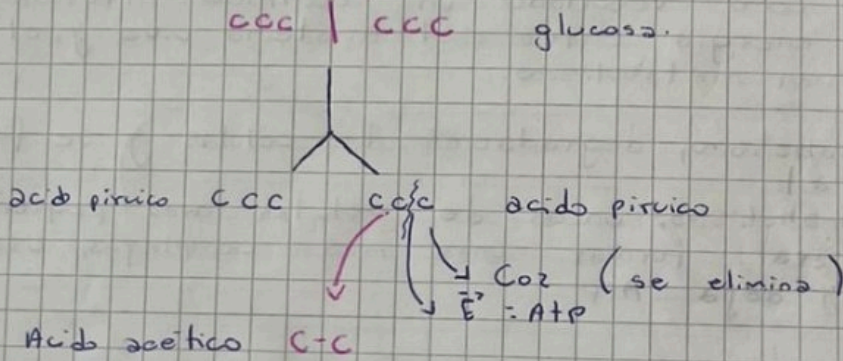 CCC | CCC glucosa.
acido piruico CCC CCC acido piruico
CO2 (se elimina)
E = Atp
Acido acetico C-C